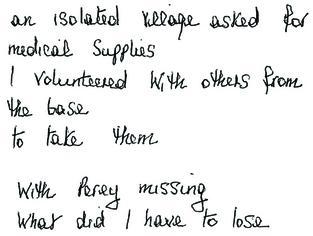 an isolated village asked for
medical supplies
I volunteered with others from
the base
to take them
With Perey missing
What did I have to lose